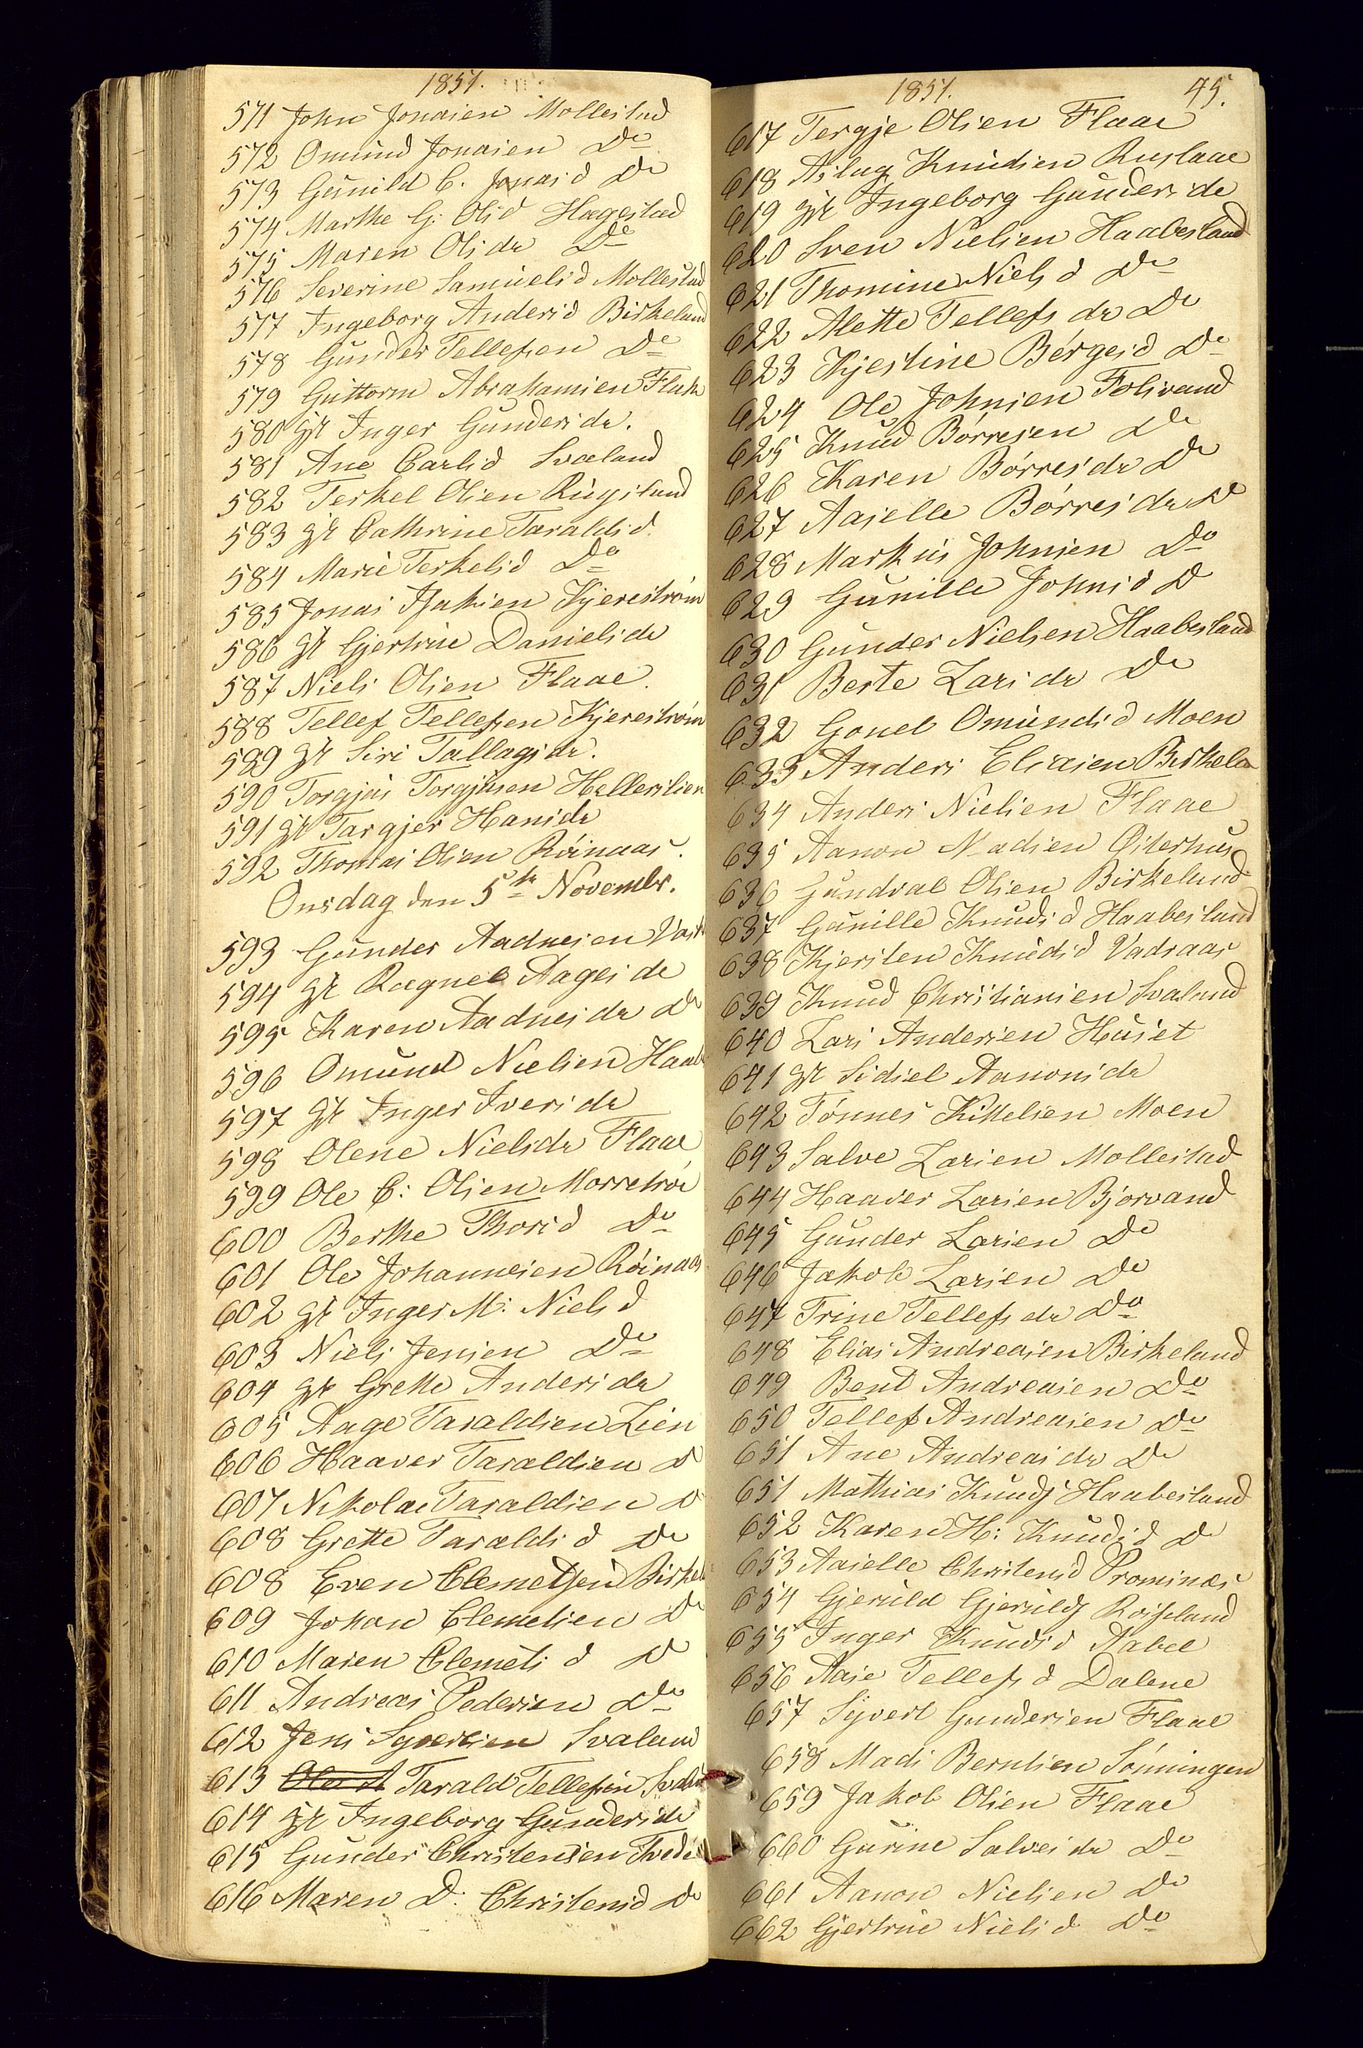 1851.
571 John Jonasen Mollestad
572 Omund Jonasen Do
573 Gunild C. Jonasd Do
574 Marthe G. Olsd Hægestad
575 Maren Olsdr Do
576 Severine Samuelsd Mollestad
577 Ingeborg Andersd Birkeland
578 Gunder Tellefsen Do
579 Guttorm Abrahamsen Flak
580 gt Inger Gundersdr.
581 Ane Carlsd Svaland
582 Terkel Olsen Rugsland
583 gt Cathrine Taraldsd.
584 Marie Terkelsd Do
585 Jonas Isaksen Kjerestrøm
586 gt Gjertrue Danielsdr
587 Niels Olsen Flaae.
588 Tellef Tellefsen Kjerestrøm
589 gt Siri Tallagsdr.
590 Torgjus Torgjusen Hellerslien
591 gt Targjer Hansdr
592 Thomas Olsen Röinaas.
Onsdag den 5te Novembr.
593 Gunder Aadnesen
594 gt Ragnel Aagesdr
595 Karen Aadnesdr Do
596 Omund Nielsen Haab
597 gt Inger Iversdr
598 Olene Nielsdr Flaae
599 Ole C: Olsen Morretröe
600 Berthe Thorsd Do
601 Ole Johannesen Röinaas
602 gt Inger M: Nielsd
603 Niels Jensen Do
604 gt Grette Andersdr
605 Aage Taraldsen Lien
606 Haaver Taraldsen Do
607 Nikolai Taraldsen Do
608 Grette Taraldsd Do
608 Even Clemetsen Birkel
609 Johan Clemetsen Do
610 Maren Clemetsd Do
611 Andreas Pedersen Do
612 Jens Syversen Svaland
613 Tarald Tellefsen Sval
614 gt Ingeborg Gundersdr
615 Gunder Christensen Tvede
616 Maren D. Christensd Do
1851. 45.
617 Tergje Olsen Flaae
618 Aslag Knudsen Ruslaae
619 gt Ingeborg Gundersdr
620 Sven Nielsen Haabesland
621 Thomine Nielsd Do
622 Alette Tellefsdr Do
623 Kjestine Børgesd Do
624 Ole Johnsen Folsvand
625 Knud Børresen Do
626 Karen Børresdr Do
627 Aaselle Børresdr Do
628 Markus Johnsen Do
629 Gunille Johnsd Do
630 Gunder Nielsen Haabesland
631 Berte Larsdr Do
632 Gonel Omundsd Moen
633 Anders Eliasen Birkela
634 Anders Nielsen Flaae
635 Aanon Madsen Østerhus
636 Gundval Olsen Birkeland
637 Gunille Knudsd Haabesland
638 Kjersten Knudsd Vadraas
639 Knud Christiansen Svaland
640 Lars Andersen Huset
641 gt Sidsel Aanonsdr
642 Tønnes Kittelsen Moen
643 Salve Larsen Mollestad
644 Haaver Larsen Bjorvand
645 Gunder Larsen Do
646 Jakob Larsen Do
647 Trine Tellefsdr Do
648 Elias Andreasen Birkeland
649 Bent Andreasen Do
650 Tellef Andreasen Do
651 Ane Andreasdr Do
651 Mathias Knuds Haabesland
652 Karen H: Knudsd Do
653 Aaselle Christensd Prominæs
654 Gjeruld Gjerulds Roisland
655 Inger Knudsd Aabel
656 Aase Tellefsd Dalene
657 Syvert Gundersen Flaae
658 Mads Berntsen Sønningen
659 Jakob Olsen Flaae
660 Gurine Salvesdr Do
661 Aanon Nielsen Do
662 Gjertrue Nielsd Do